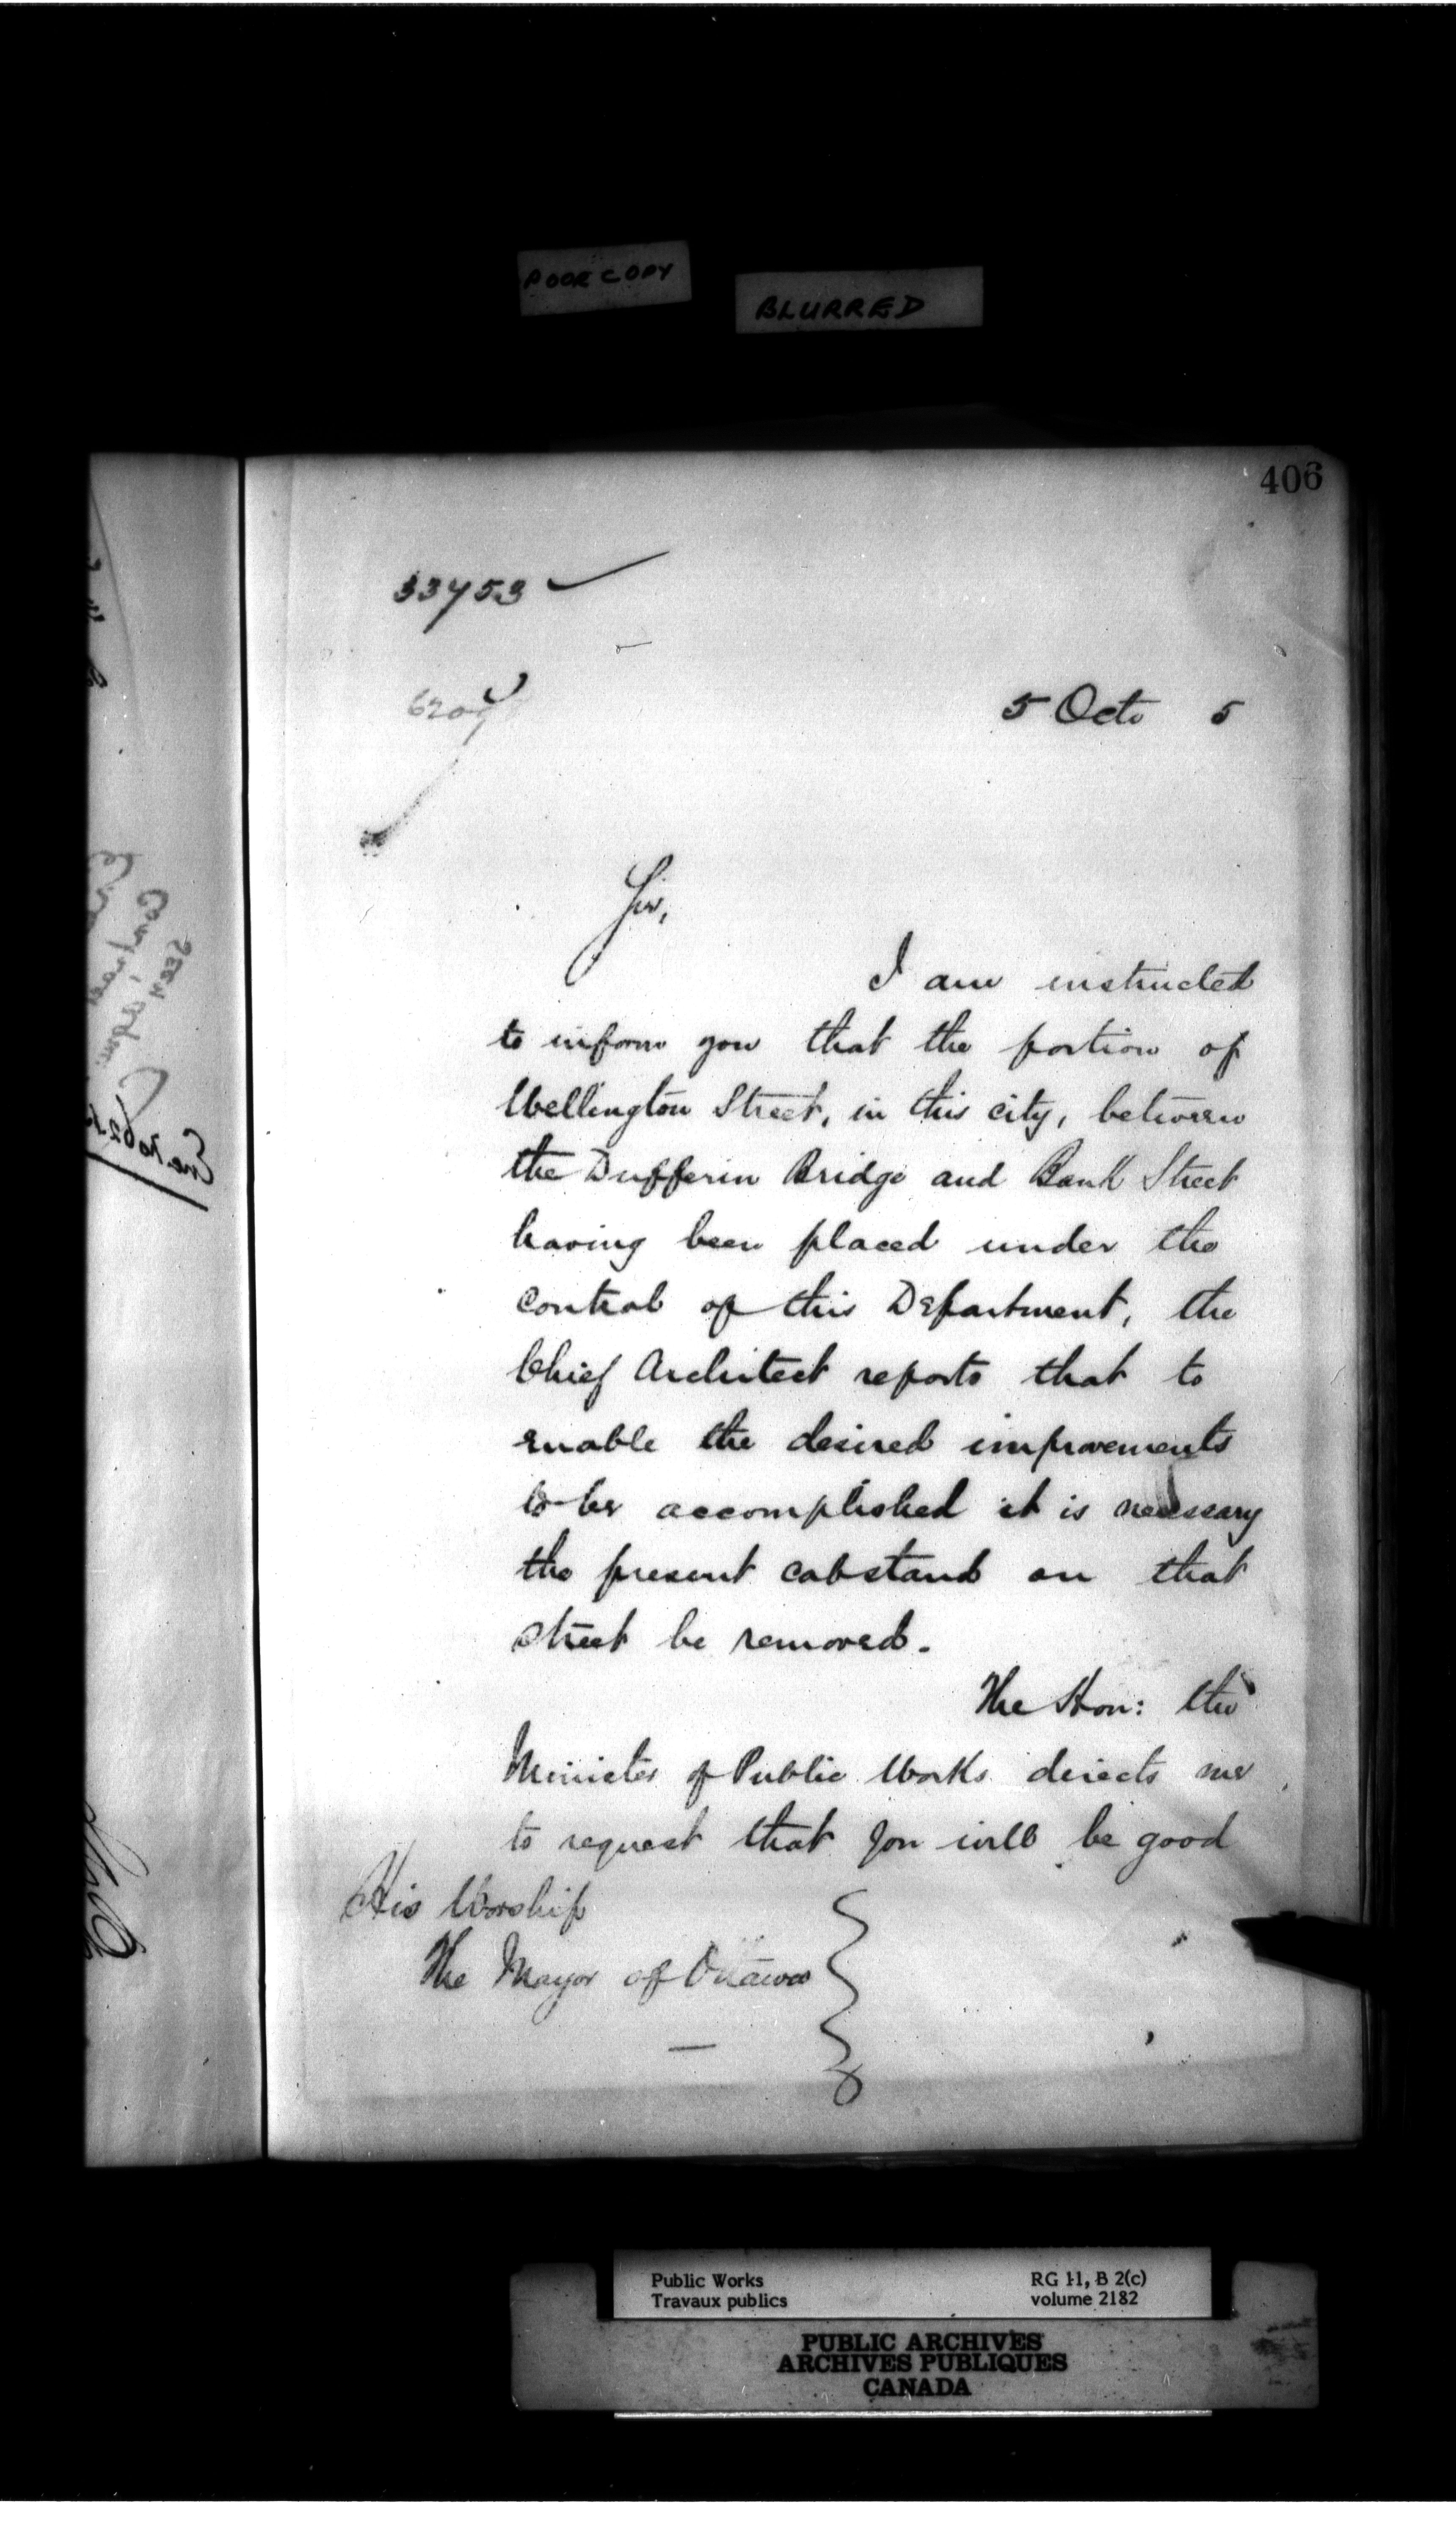 POOR COPY
BLURRED
406
33753
5 Octo 5
Sir,
I am instructed
to inform you that the portion of
Wellington Street, in this city, between
the Dufferin Bridge and Bank Street
having been placed under the
control of this Department, the
Chief Architect reports that to
enable the desired improvements
to be accomplished it is necessary
the present cabstand on that
street be removed.
The Hon: the
Minister of Public Works directs me
to request that you will be good
His Worship
The Mayor of Ottawa
Public Works
Travaux publics
RG 11, B 2(c)
volume 2182
PUBLIC ARCHIVES
ARCHIVES PUBLIQUES
CANADA